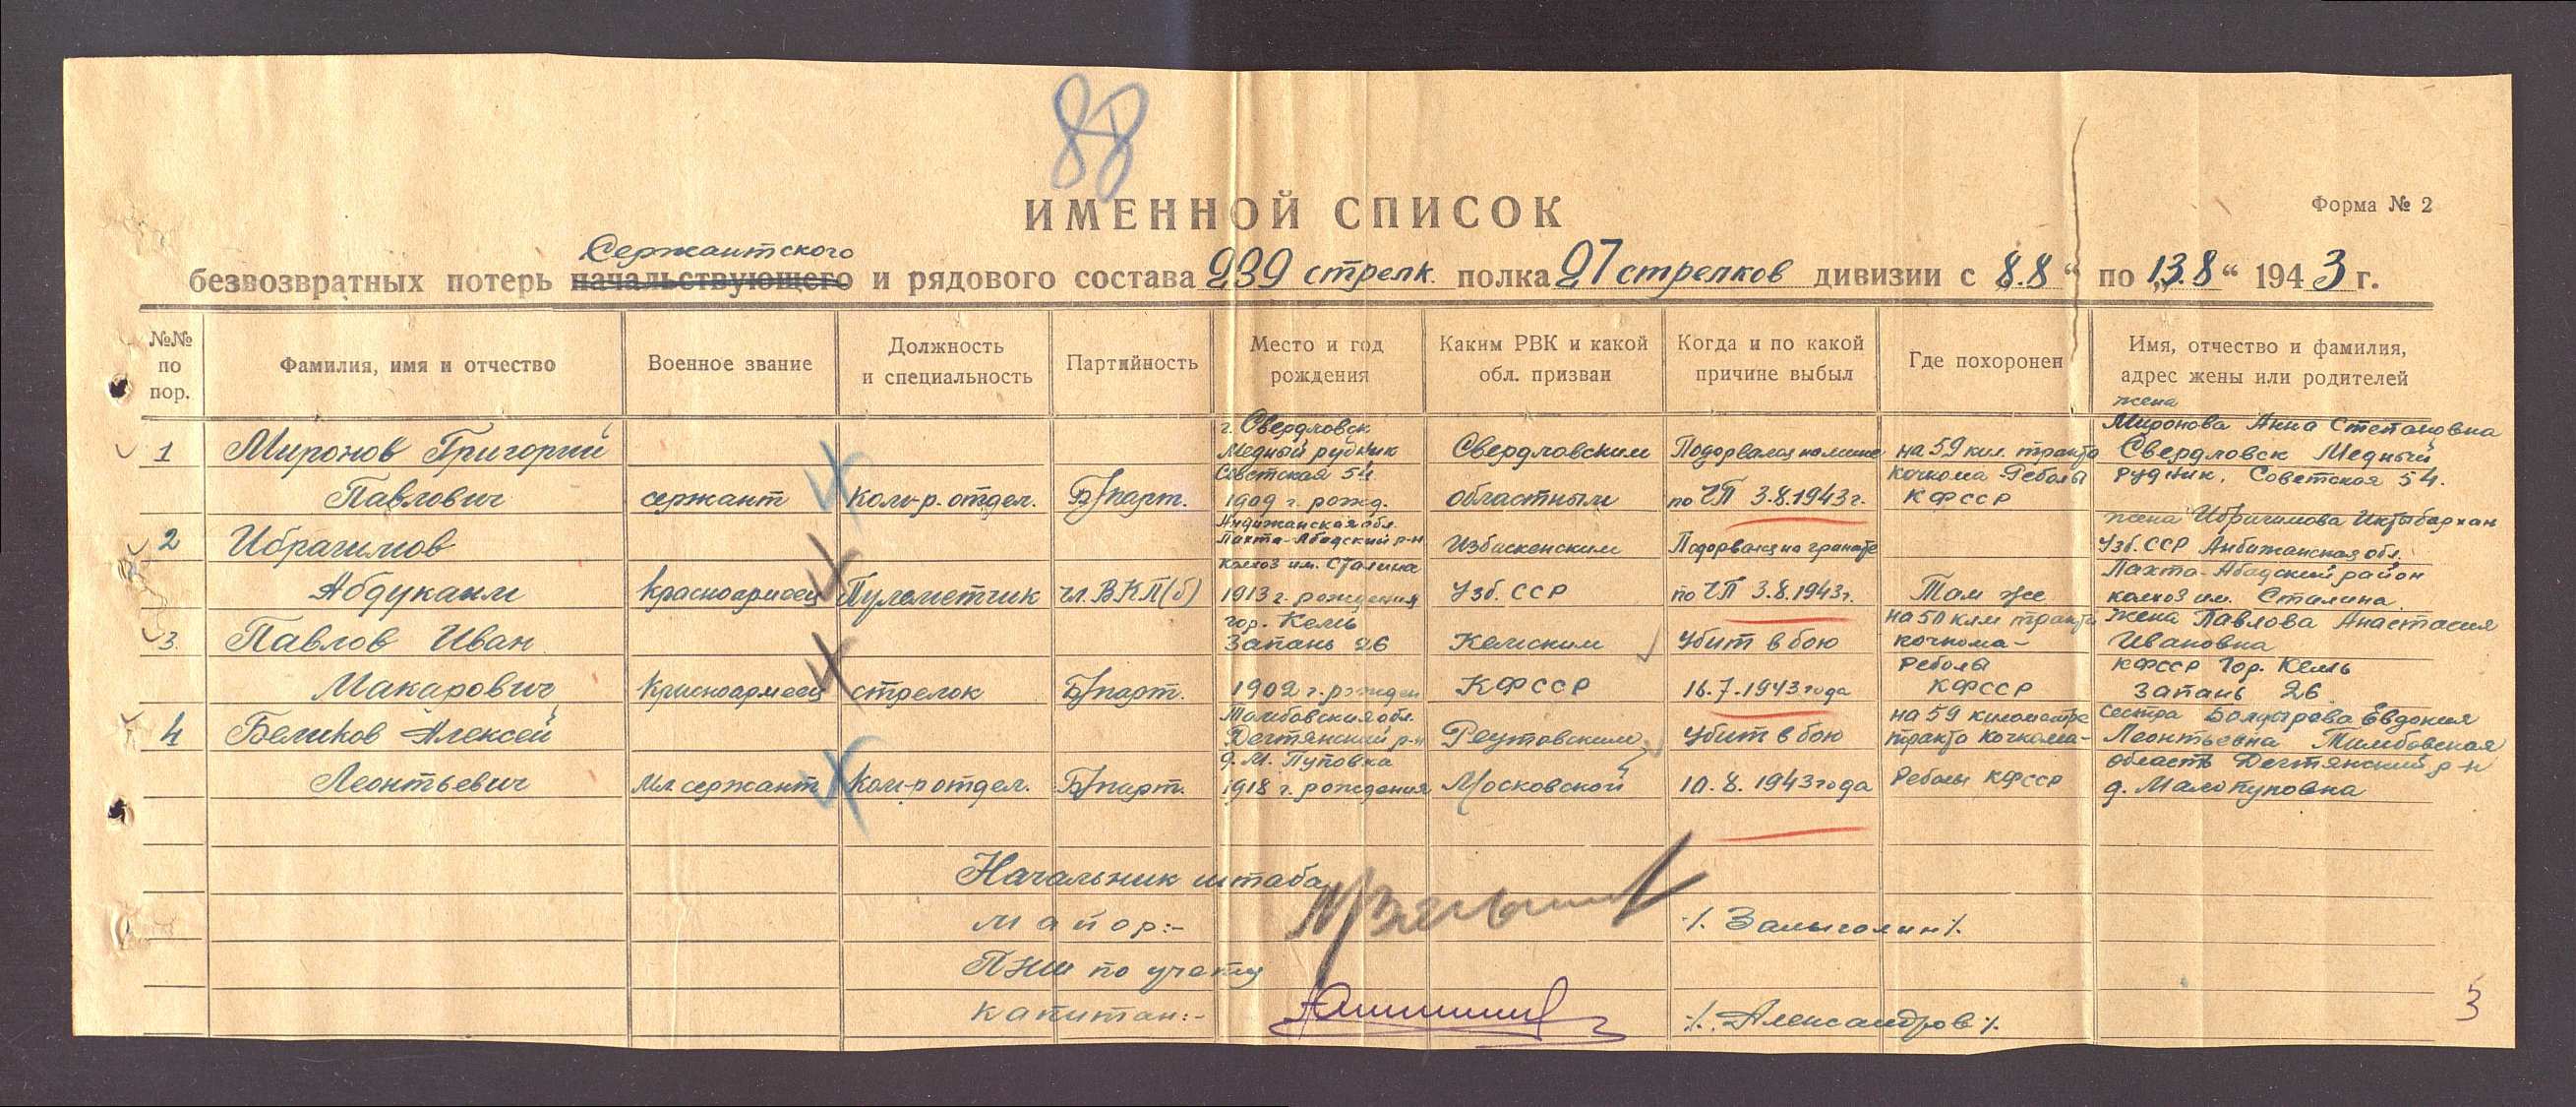 88
ИМЕННОЙ СПИСОК
Форма № 2
Сержантского
безвозвратных потерь начальствующего и рядового состава 239 стрелк. полка 27 стрелков дивизии с „8.8“ по „13.8“ 1943 г.
№№ по пор.
Фамилия, имя и отчество
Военное звание
Должность и специальность
Партийность
Место и год рождения
Каким РВК и какой обл. призван
Когда и по какой причине выбыл
Где похоронен
Имя, отчество и фамилия, адрес жены или родителей
1
Миронов Григорий
Павлович
сержант
Ком-р. отдел.
Б/парт.
г. Свердловск
Медный рудник
Советская 54
1909 г. рожд.
Свердловским
областным
Подорвался на мине
по ЧП 3.8.1943 г.
на 59 км. тракта
Кочкома Реболы
КФССР
жена
Миронова Анна Степановна
Свердловск Медный
рудник, Советская 54.
2
Ибрагимов
Абдукаим
Красноармеец
Пулеметчик
чл. ВКП(б)
Андижанская обл.
Пахта-Абадский р-н
колхоз им. Сталина
1913 г. рождения
Избаскенским
Узб. ССР
Подорвался на гранате
по ЧП 3.8.1943г.
Там же
жена Ибрагимова
Узб. ССР Анбижанская обл.
Пахта-Абадский район
колхоз им. Сталина
3.
Павлов Иван
Макарович
Красноармеец
стрелок
Б/парт.
гор. Кемь
Запань 26
1902 г. рожден
Кемским
КФССР
Убит в бою
16.7.1943 года
на 50 клм тракта
Кочкома-
Реболы
КФССР
жена Павлова Анастасия
Ивановна
КФССР Гор. Кемь
Запань 26
4
Беликов Алексей
Леонтьевич
Мл. сержант
Ком-р отдел.
Б/парт.
Тамбовская обл.
Дегтянский р-н
д. М. Пуповка
1918 г. рождения
Реутовским
Московской
Убит в бою
10.8.1943 года
на 59 километре
тракта Кочкома-
Реболы КФССР
сестра Болдырева Евдокия
Леонтьевна Тамбовская
область Дегтянский р-н
д. Малопуповка
Начальник штаба
майор:-
/. Замыголин /.
ПНШ по учету
капитан:-
/. Александров /.
3